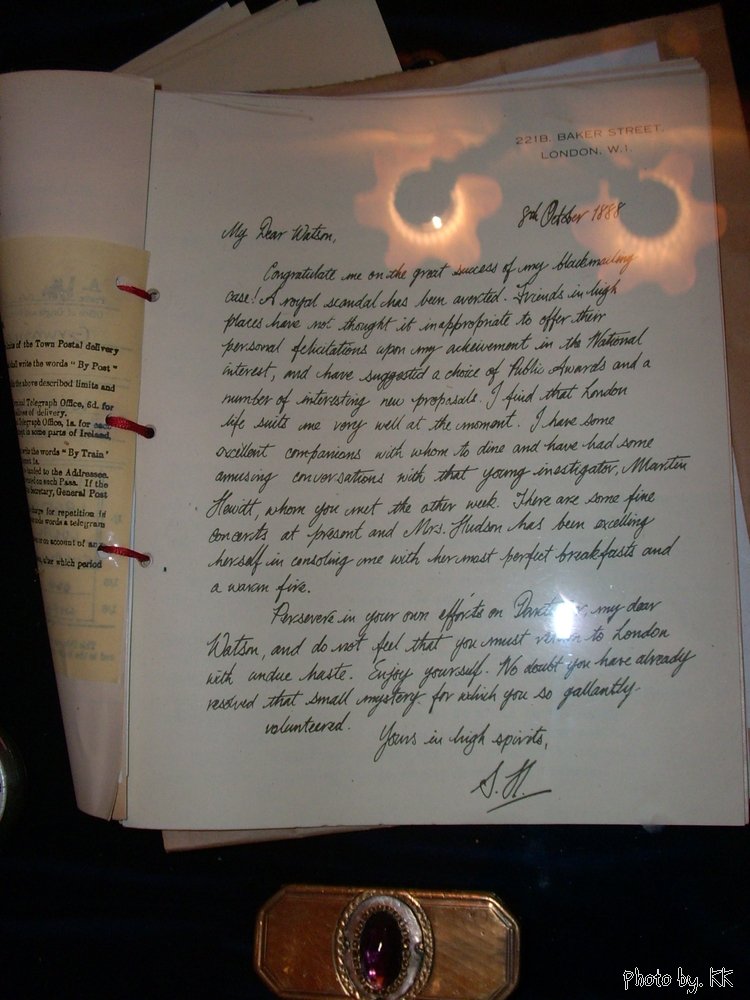 221B, BAKER STREET,
LONDON, W.1.
8th October 1888
My Dear Watson,
Congratulate me on the great success of my blackmailing
case! A royal scandal has been averted. Friends in high
places have not thought it inappropriate to offer their
personal felicitations upon my acheivement in the National
interest, and have suggested a choice of Public Awards and a
number of interesting new proposals. I find that London
life suits me very well at the moment. I have some
excellent companions with whom to dine and have had some
amusing conversations with that young investigator, Martin
Hewitt, whom you met the other week. There are some fine
concerts at present and Mrs. Hudson has been excelling
herself in consoling me with her most perfect breakfasts and
a warm fire.
Persevere in your own efforts on my dear
Watson, and do not feel that you must to London
with undue haste. Enjoy yourself. No doubt you have already
resolved that small mystery for which you so gallantly
volunteered.
Yours in high spirits,
S. H.
of the Town Postal delivery
write the words "By Post"
the above described limits and
Telegraph Office, 6d. for
of delivery.
Telegraph Office, 1s. for each
in some parts of Ireland,
the words "By Train"
to the Addressee.
on such Pass. If the
Secretary, General Post
for repetition
words a telegram
on account of any
after which period
Photo by. KK